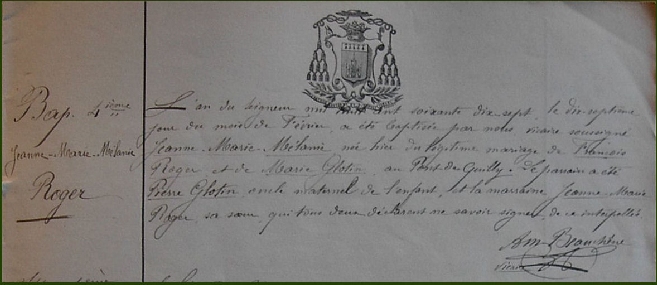 Bap. 4ième
Jeanne-Marie-Mélanie
Roger
L'an du Seigneur mil huit cent soixante dix-sept le dix-septième
jour du mois de Février, a été baptisée par nous vicaire soussigné
Jeanne-Marie-Mélanie née hier du légitime mariage de François
Roger et de Marie Glotin au Pont-de-Guilly. Le parrain a été
Pierre Glotin oncle maternel de l'enfant, et la marraine Jeanne Marie
Roger, sa sœur qui tous deux déclarent ne savoir signer de ce interpellés
Am
vicaire